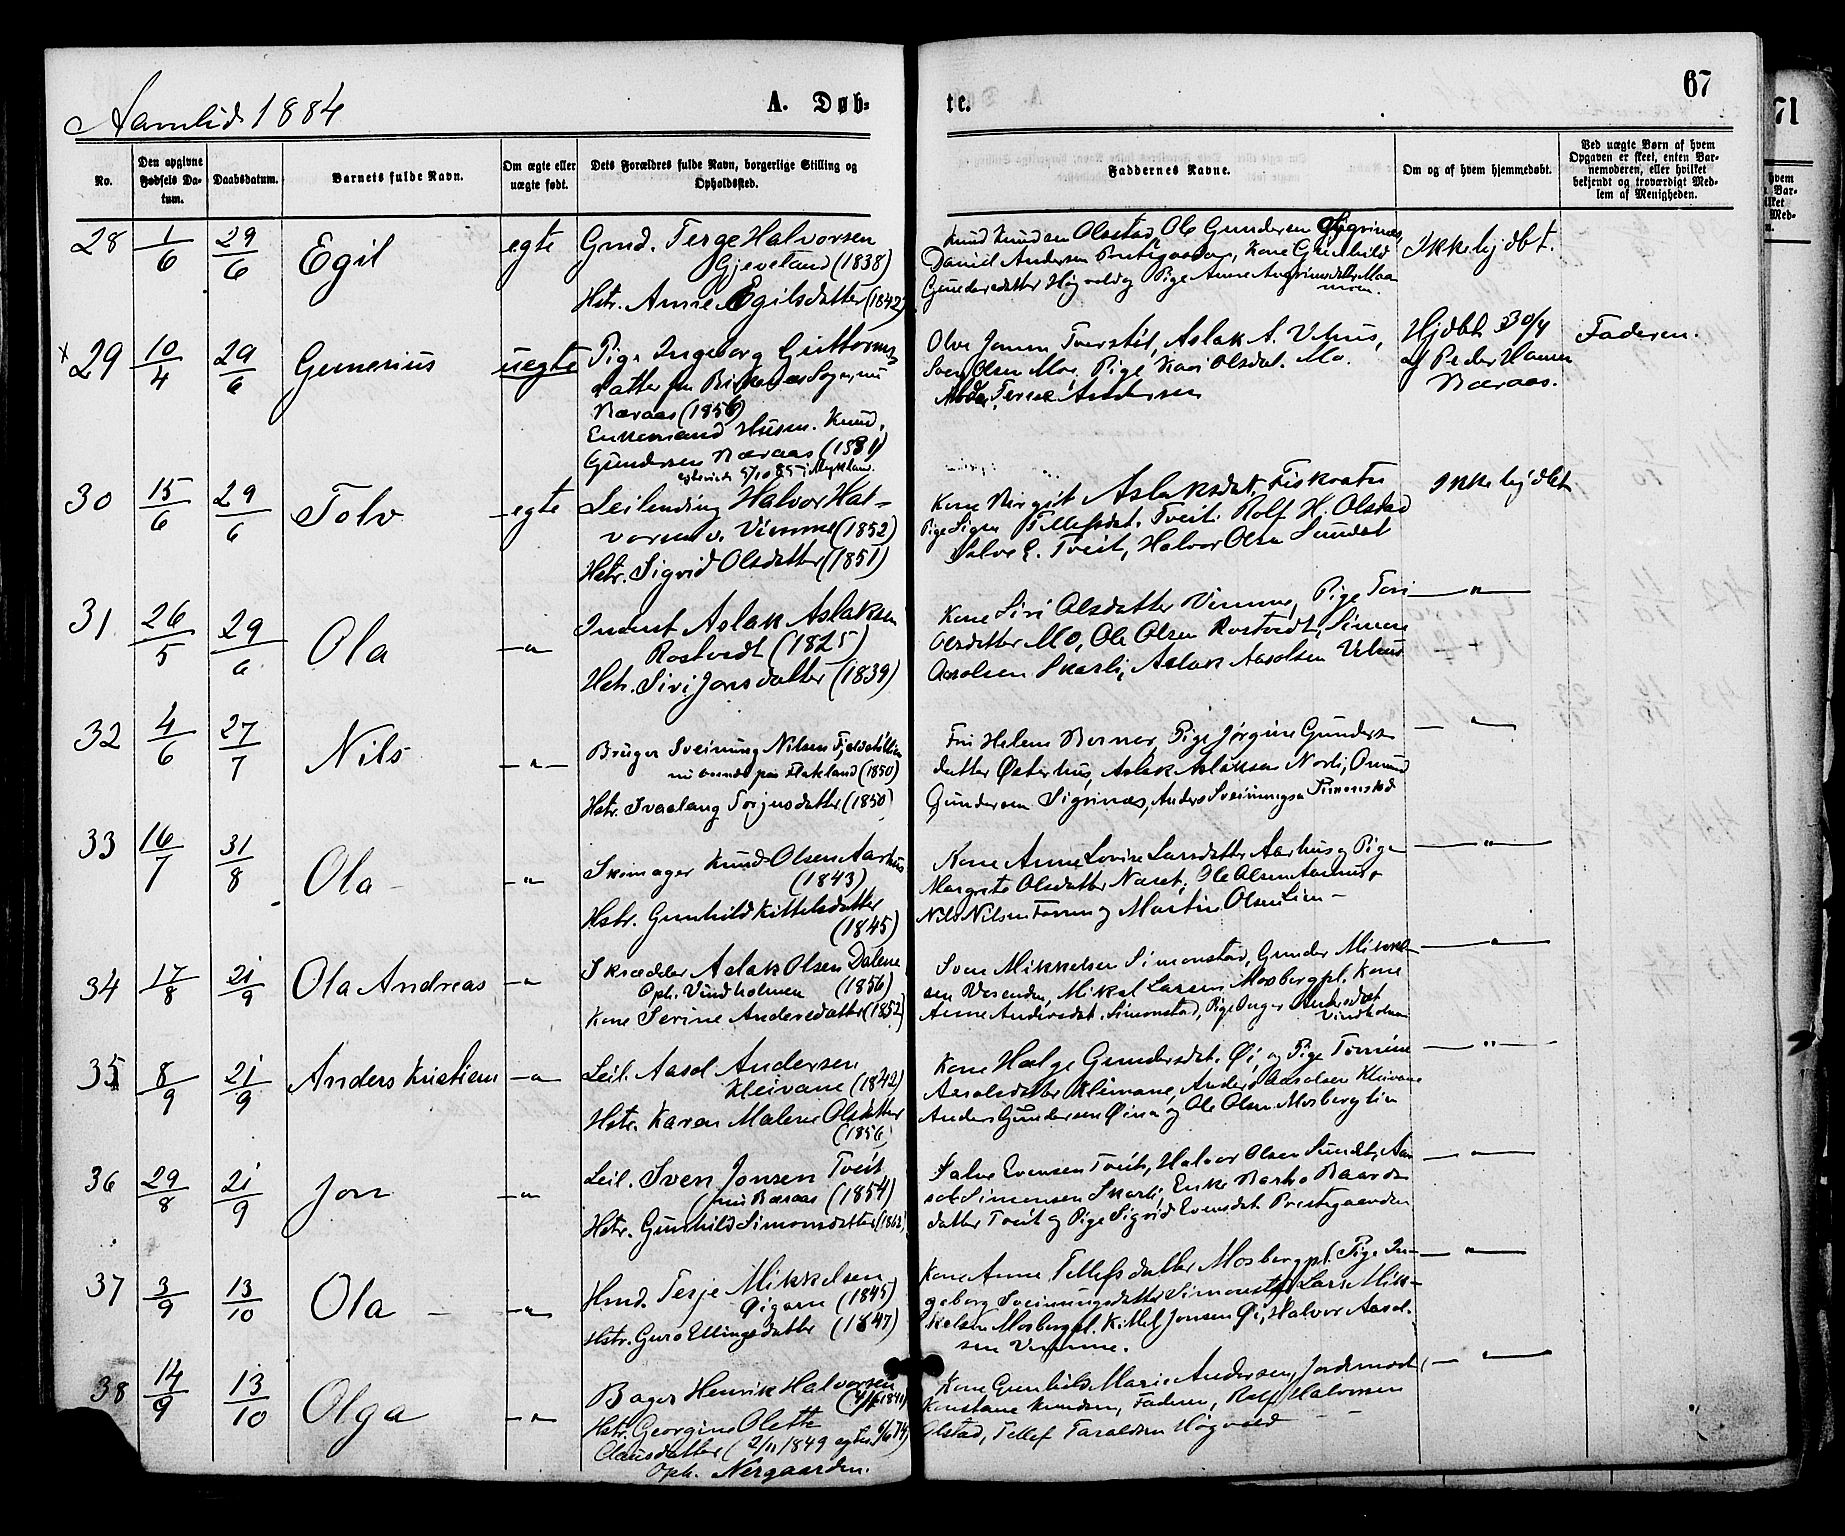 Aamlid 1884
A. Døb-
te.
67
71
No.
Den opgivne Fødsels Da-tum.
Daabsdatum.
Barnets fulde Navn.
Om ægte eller uægte født.
Dets Forældres fulde Navn, borgerlige Stilling og Opholdssted.
Faddernes Navne.
Om og af hvem hjemmedøbt.
Ved uægte Børn af hvem Opgaven er skeet, enten Bar-nemoderen, eller hvilket bekjendt og troværdigt Med-lem af Menigheden.
28 1/6 29/6 Egil egte
Gmd. Terge Halvorsen
Gjeveland (1838)
Hstr. Anne Egilsdatter (1842)
Knud Knudsen Olstad, Ole Gundersen
Daniel Andersen Kone Gunhild
Gundersdatter Høgvold og Pige Anne
Ikke hjdbt.
x 29 10/4 29/6 Gunerius uegte
Pige Ingeborg Guttorms
datter fra Birkenæs Sogn, nu
Næraas (1856)
Enkemand Husm. Knud
Gundersen Næraas (1831)
Olve Jonsen Tveratøl, Aslak A. Vehus,
Sven Olsen Mo, Pige Kari Olsdat. Mo.
Andersen
Hjdbt 30/4
af Peder Hansen
Næraas.
Faderen.
30 15/6 29/6 Tolv egte
Leilending Halvor Hal-
vorsen v. Vimme (1852)
Hstr. Sigrid Olsdatter (1851)
Kone Birgit Aslaksdat. Fiskvatn
Pige Signe Tellefsdat. Tveit. Rolf H. Olstad
Salve E. Tveit, Halvor Olsen Sundet
Ikke hjdbt
31 26/5 29/6 Ola —"—
Inderst Aslak Aslaksen
Rostvedt (1825)
Hstr. Siri Jonsdatter (1839)
Kone Siri Olsdatter Vimme, Pige Tori
Olsdatter Mo, Ole Olsen Rostvedt, Simon
Aasolsen Skarli, Aslak Aasolsen Vehus
—"—
32 4/6 27/7 Nils —"—
Bruger Sveinung Nilsen
Flakland (1850)
Hstr. Svaalaug Torjusdatter (1850)
Frk Helene Berner, Pige Jørgine Gunders
datter Østerhus, Aslak Aslaksen Norli, Omund
Gundersen Sigrinæs, Anders Sveinungsen Simonstad
—"—
33 16/7 31/8 Ola —"—
Skomager Knud Olsen Aarhus
(1843)
Hstr. Gunhild Kittelsdatter
(1845)
Kone Anne Lovise Larsdatter Aarhus og Pige
Margrete Olsdatter Naset, Ole Olsen Aarhus,
Nils Nilsen og Martin Olsen Lien
—"—
34 17/8 21/9 Ola Andreas —"—
Skrædder Aslak Olsen Dalene
Oph. Vindholmen (1856)
Kone Serine Andersdatter (1852)
Sven Mikkelsen Simonstad, Gunder Mikkel-
sen Vesenden, Mikal Larsen Mosbergpl. Kone
Anne Andersdat. Simonstad, Pige Inger Andersdat
Vindholmen
—"—
35 8/9 21/9 Anders Kristian —"—
Leil. Aasol Andersen
Kleivane (1842)
Hstr. Karen Malene Olsdatter
(1856)
Kone Hælge Gundersdat. Øi, og Pige Tomine
Aasolsdatter Kleivane, Anders Aasolsen Kleivane
Anders Gundersen Øina og Ole Olsen Mosberglien
—"—
36 29/8 21/9 Jon —"—
Leil. Sven Jonsen Tveit
(nu Næraas (1854)
Hstr. Gunhild Simonsdatter
Salve Evensen Tveit, Halvor Olsen Sundet, Aa-
sol Simonsen Skarli, Enke Baards
datter Tveit og Pige Sigrid Evensdat. Prestegaarden
—"—
37 3/9 13/10 Ola —"—
Hmd. Terje Mikkelsen
Øigarn (1845)
Hstr. Guro Ellingsdatter (1847)
Kone Anne Tellefsdatter Mosbergpl. Pige In-
geborg Sveinungsdatter Simonstad, Lars Mik-
kelsen Mosbergpl. Kittel Jonsen Øi, Halvor Aasol-
sen Vimme.
—"—
38 14/9 13/10 Olga —"—
Bager Henrik Halvorsen
Hstr. Georgine Olette
Clausdatter (2/11 1849
Oph. Nergaarden.
Kone Gunhild Marie Andersen, Jordmoder
Konstance Knudsen, Faderen, Rolf Halvorsen
Olstad, Tellef Taraldsen Høgvold
—"—